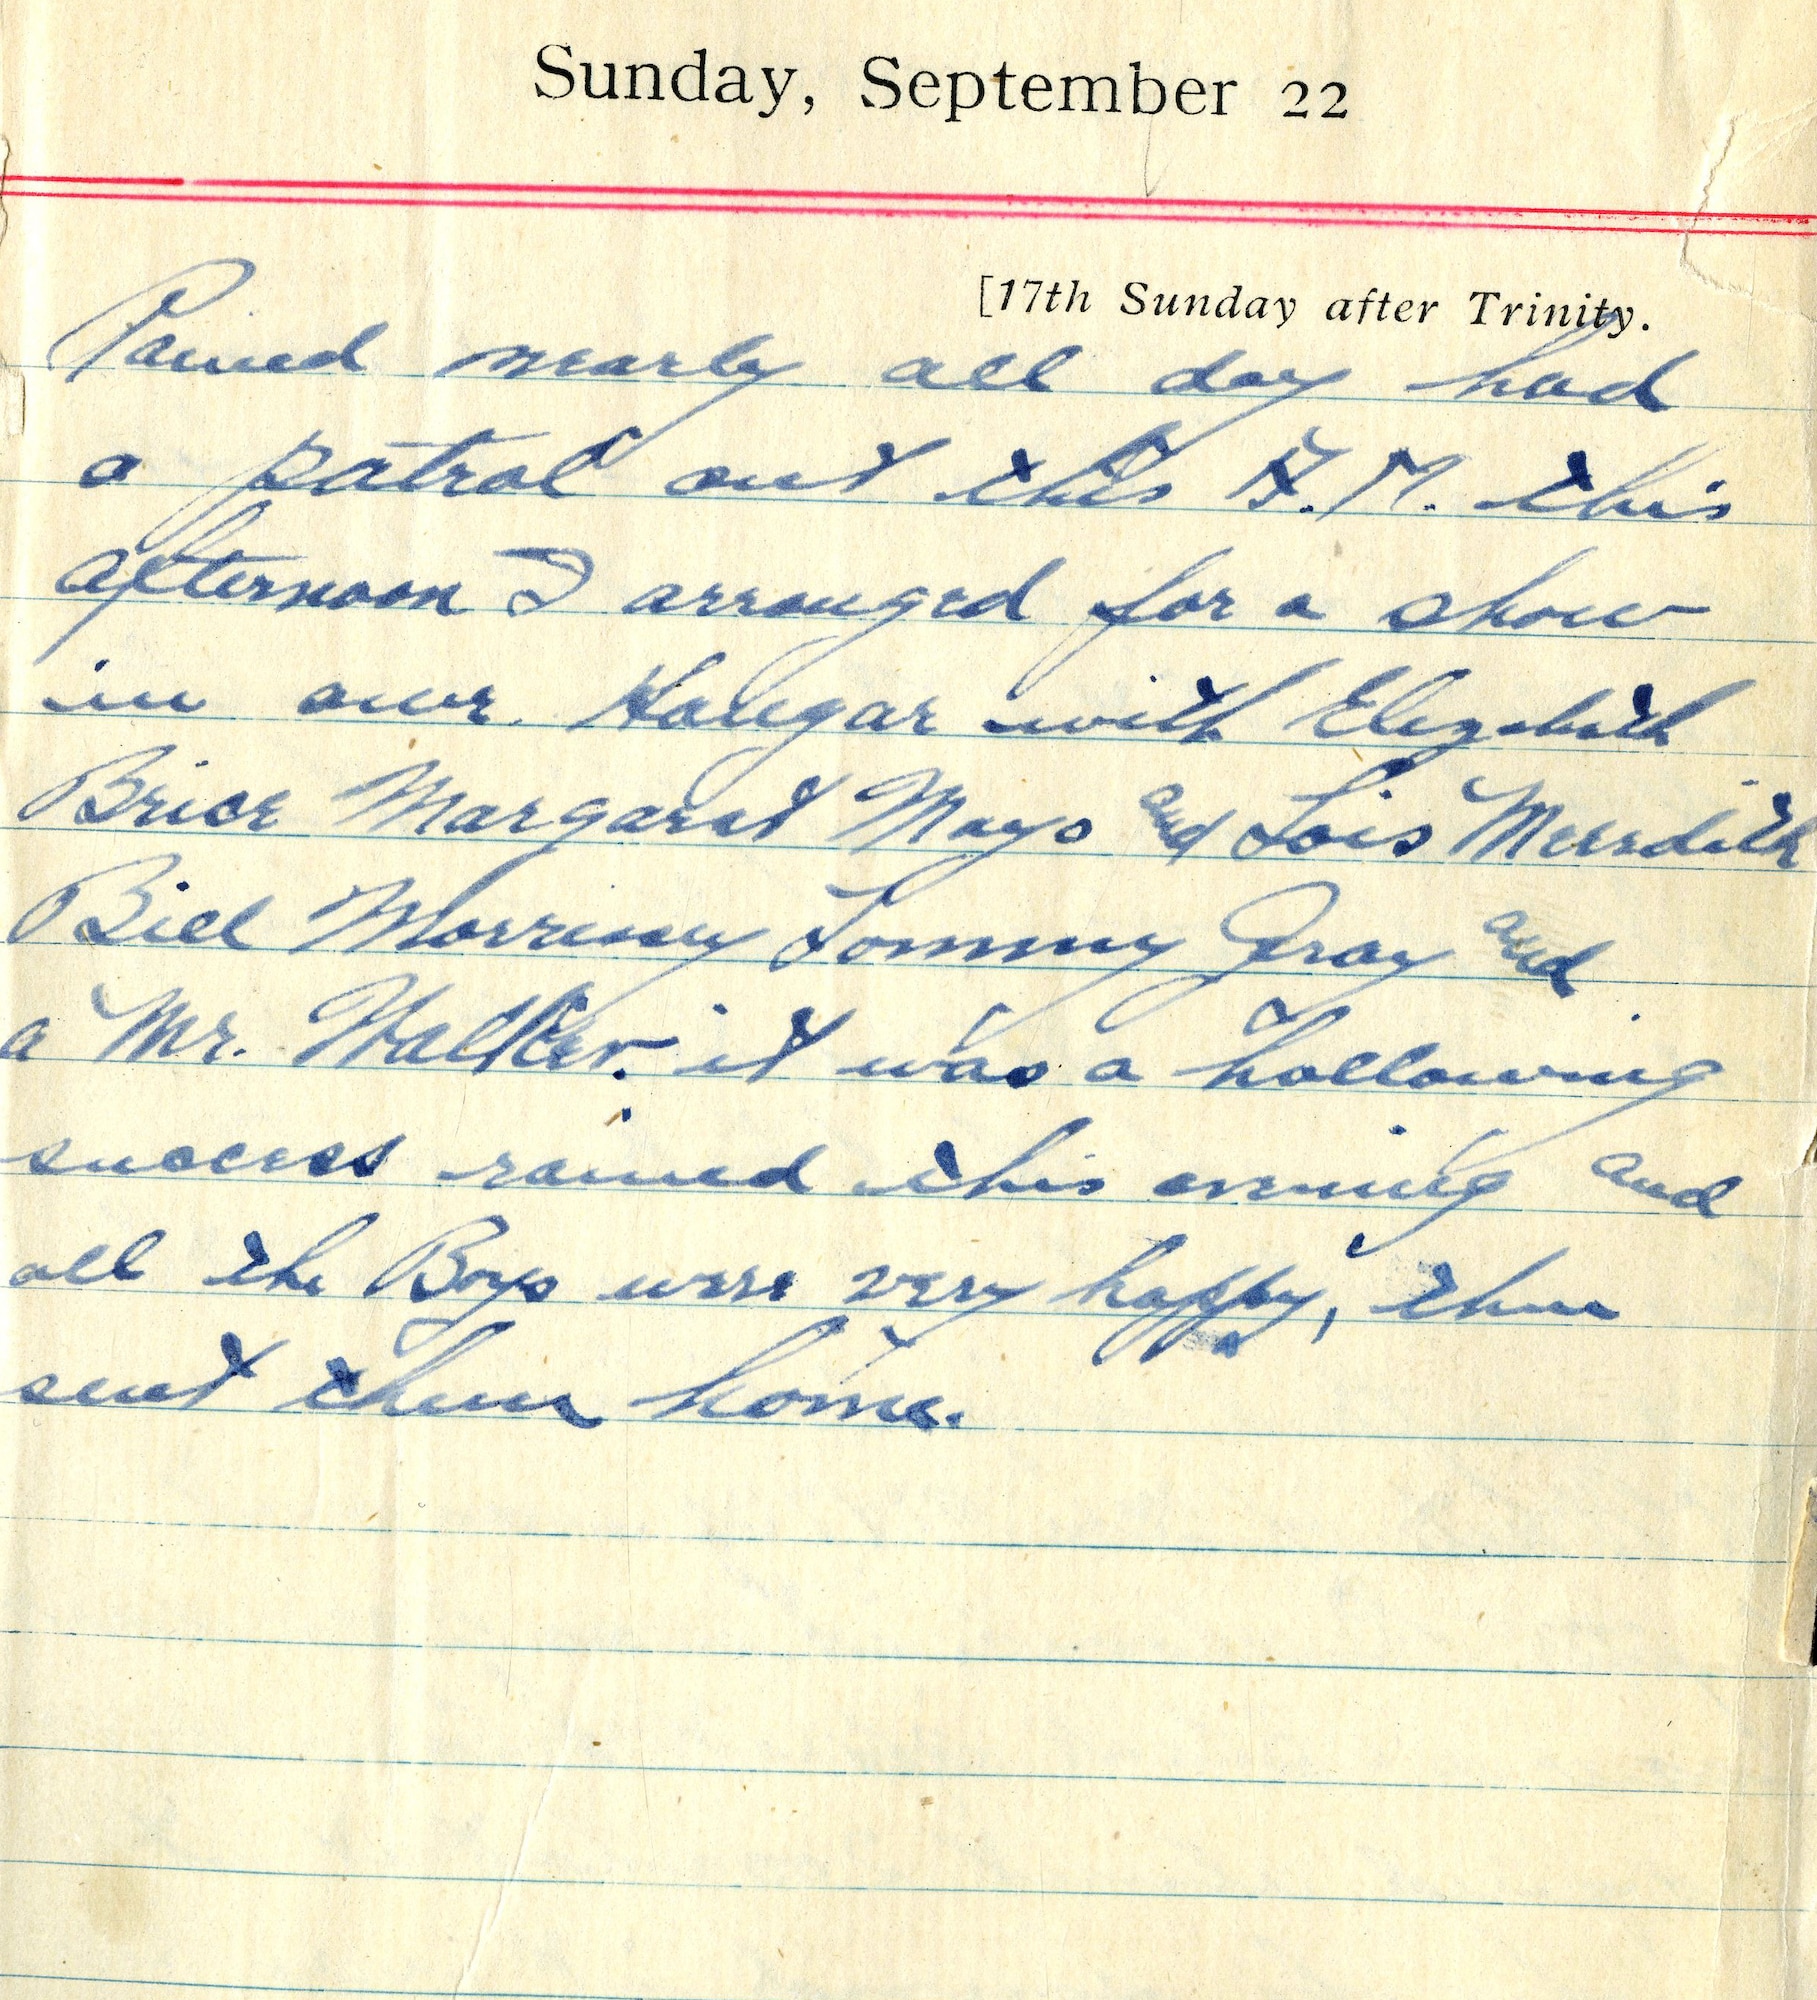 Sunday, September 22
[17th Sunday after Trinity.
Rained nearly all day had
a patrol out this A.M. this
afternoon I arranged for a show
in our Hangar with Elizabeth
Brice Margaret Mayo and Lois Meredith
Bill Morrisey Tommy Gray and
a Mr. Walker. it was a hollowing
success rained this evening and
all the Boys were very happy, then
sent them home.